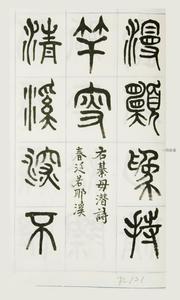 漫願為持
竿叟
右綦毋潛詩
春泛若耶溪
清溪深不